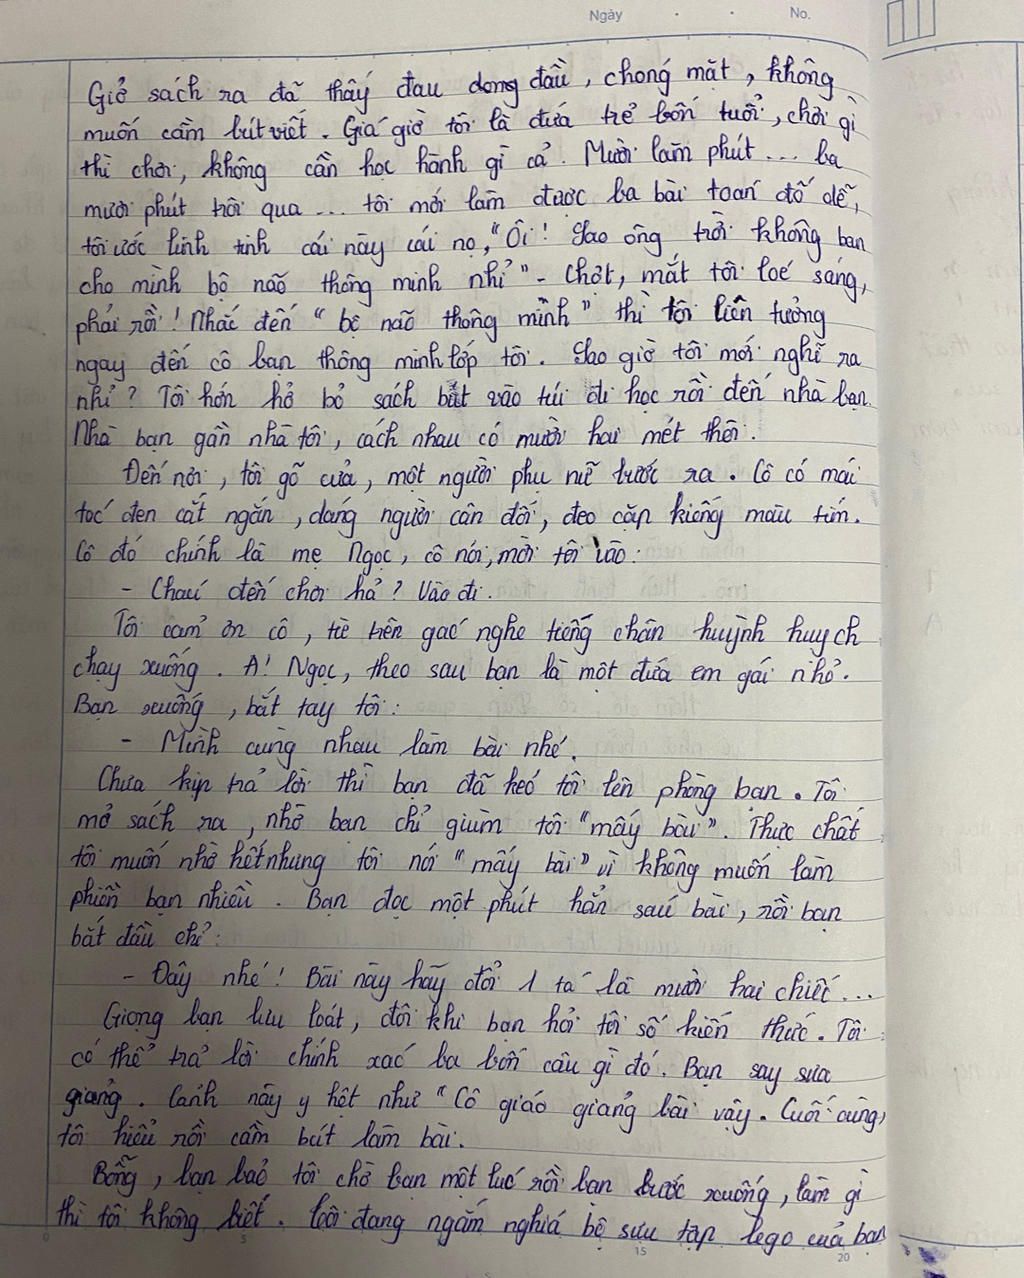 Ngày . . No.
Giở sách ra đã thấy đau dong đầu, chóng mặt, không
muốn cầm bút viết. Giá giờ tôi là đứa trẻ bốn tuổi, chơi gì
thì chơi, không cần học hành gì cả. Mười lăm phút... ba
mươi phút trôi qua... tôi mới làm được ba bài toán đố dễ,
tôi ước linh tinh cái này cái nọ, "Ôi! Sao ông trời không ban
cho mình bộ não thông minh nhỉ" - Chợt, mắt tôi loé sáng,
phải rồi! Nhắc đến "bộ não thông minh" thì tôi liên tưởng
ngay đến cô bạn thông minh lớp tôi. Sao giờ tôi mới nghĩ ra
nhỉ? Tôi hớn hở bỏ sách bút vào túi đi học rồi đến nhà bạn.
Nhà bạn gần nhà tôi, cách nhau có mười hai mét thôi.
Đến nơi, tôi gõ cửa, một người phụ nữ bước ra. Cô có mái
tóc đen cắt ngắn, dáng người cân đối, đeo cặp kiếng màu tím.
Cô đó chính là mẹ Ngọc, cô nói, mời tôi vào:
- Cháu đến chơi hả? Vào đi.
Tôi cảm ơn cô, từ trên gác nghe tiếng chân huỳnh huỵch
chạy xuống. A! Ngọc, theo sau bạn là một đứa em gái nhỏ.
Bạn xuống, bắt tay tôi:
- Mình cùng nhau làm bài nhé.
Chưa kịp trả lời thì bạn đã kéo tôi lên phòng bạn. Tôi
mở sách ra, nhờ bạn chỉ giùm tôi "mấy bài". Thực chất
tôi muốn nhờ hết nhưng tôi nói "mấy bài" vì không muốn làm
phiền bạn nhiều. Bạn đọc một phút hẳn sáu bài, rồi bạn
bắt đầu chỉ:
- Đây nhé! Bài này hãy đổi 1 tá là mười hai chiếc...
Giọng bạn lưu loát, đôi khi bạn hỏi tôi số kiến thức. Tôi
có thể trả lời chính xác ba bốn câu gì đó. Bạn say sưa
giảng. Cảnh này y hệt như "Cô giáo giảng bài vậy. Cuối cùng,
tôi hiểu rồi cầm bút làm bài.
Bỗng, bạn bảo tôi chờ bạn một lúc rồi bạn bước xuống, làm gì
thì tôi không biết. Tôi đang ngắm nghía bộ sưu tập lego của bạn
0 5 15 20